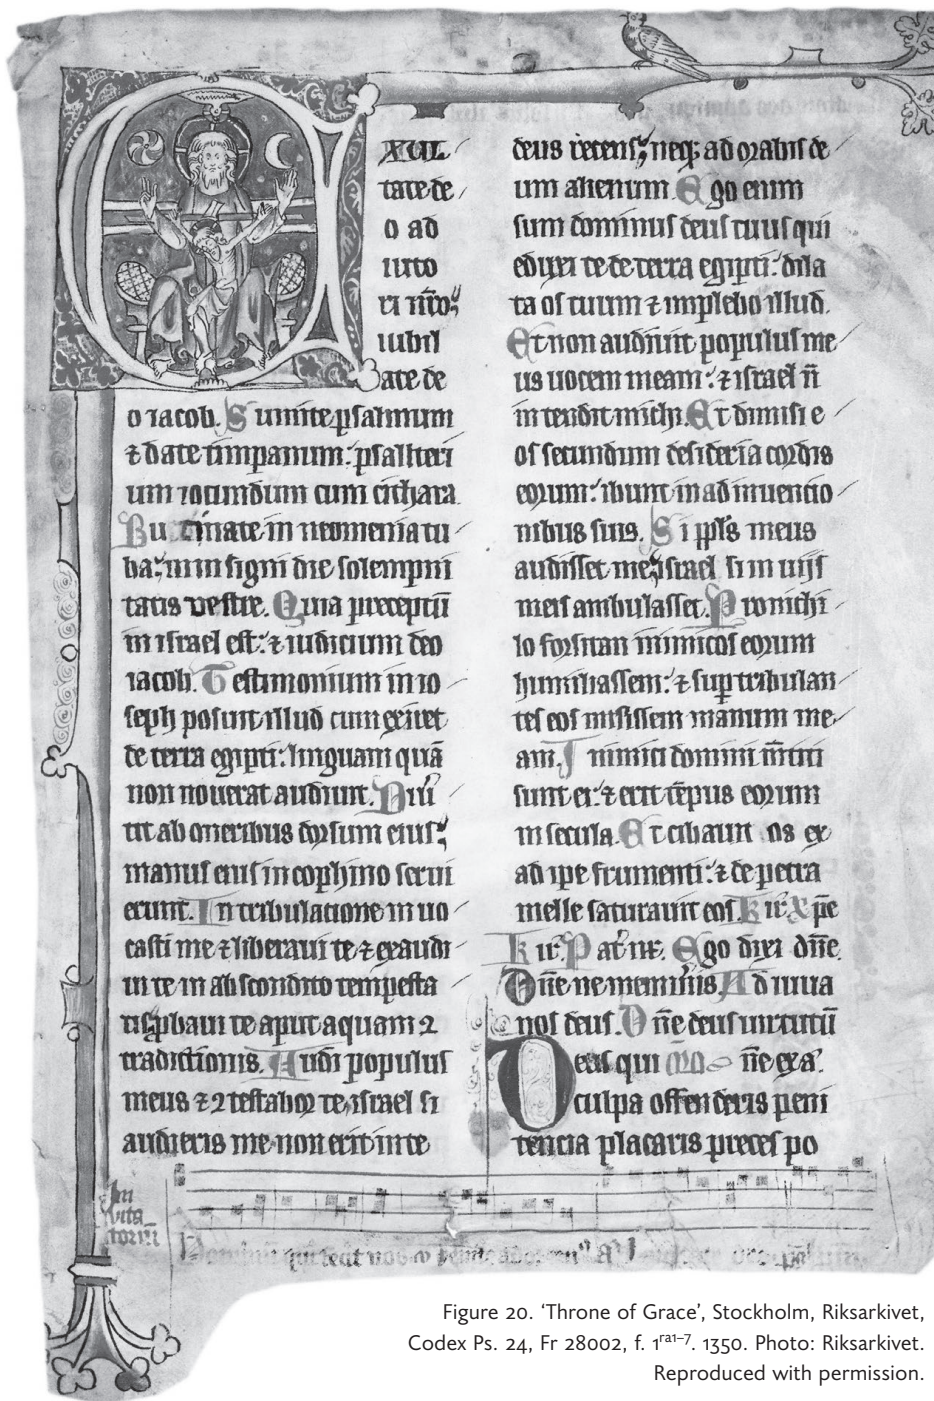 XUL
tate de
o ad
iuto
ri nr̄o
iubil
ate de
o iacob. Sumite psalmum
⁊ date timpanum: psalteri
um iocundum cum cithara
Bucinate in neomenia tu
ba: in insigni die solempni
tatis vestre. Quia preceptū
in israel est: ⁊ iudicium deo
iacob. Testimonium in io
seph posuit illud cum exiret
de terra egipti: linguam quā
non nouerat audiuit. Diu̾
tit ab oneribus dorsum eius:
manus eius in cophino serui
erunt. In tribulatione inuo
casti me ⁊ liberaui te ⁊ exaudi
ui te in abscondito tempesta
tis ꝓbaui te aput aquam ꝯ
tradictionis. Audi populus
meus ⁊ ꝯtestabor te israel si
audieris me non erit in te
deus recens: neqꝫ adorabis de
um alienum Ego enim
sum dominus deus tuus qui
eduxi te de terra egipti: dila
ta os tuum ⁊ implebo illud.
Et non audiuit populus me
us uocem meam: ⁊ israel ñ
intendit michi. Et dimisi e
os secundum desideria cordis
eorum: ibunt in adinuentio
nibus suis. Si ppl̄s meus
audisset me: israel si in uijs
meis ambulasset. Pro nichi
lo forsitan inimicos eorum
humiliassem: ⁊ suꝑ tribulan
tes eos misissem manum me
am. Inimici domini m̄titi
sunt ei: ⁊ erit tēpus eorum
in secula. Et cibauit os ex
adipe frumenti: ⁊ de petra
melle saturauit eos. Kir̄ Xpē
Kir̄ Pat̾ nr̄. Ego dixi dn̄e.
Dn̄e ne memin̾is. Adiuua
nos deus. Dn̄e deus uirtutū
Deus qui ñe exa.
culpa offenderis peni
tencia placaris preces po
In
vita
toriū
Figure 20. ‘Throne of Grace’, Stockholm, Riksarkivet,
Codex Ps. 24, Fr 28002, f. 1ra1–7. 1350. Photo: Riksarkivet.
Reproduced with permission.